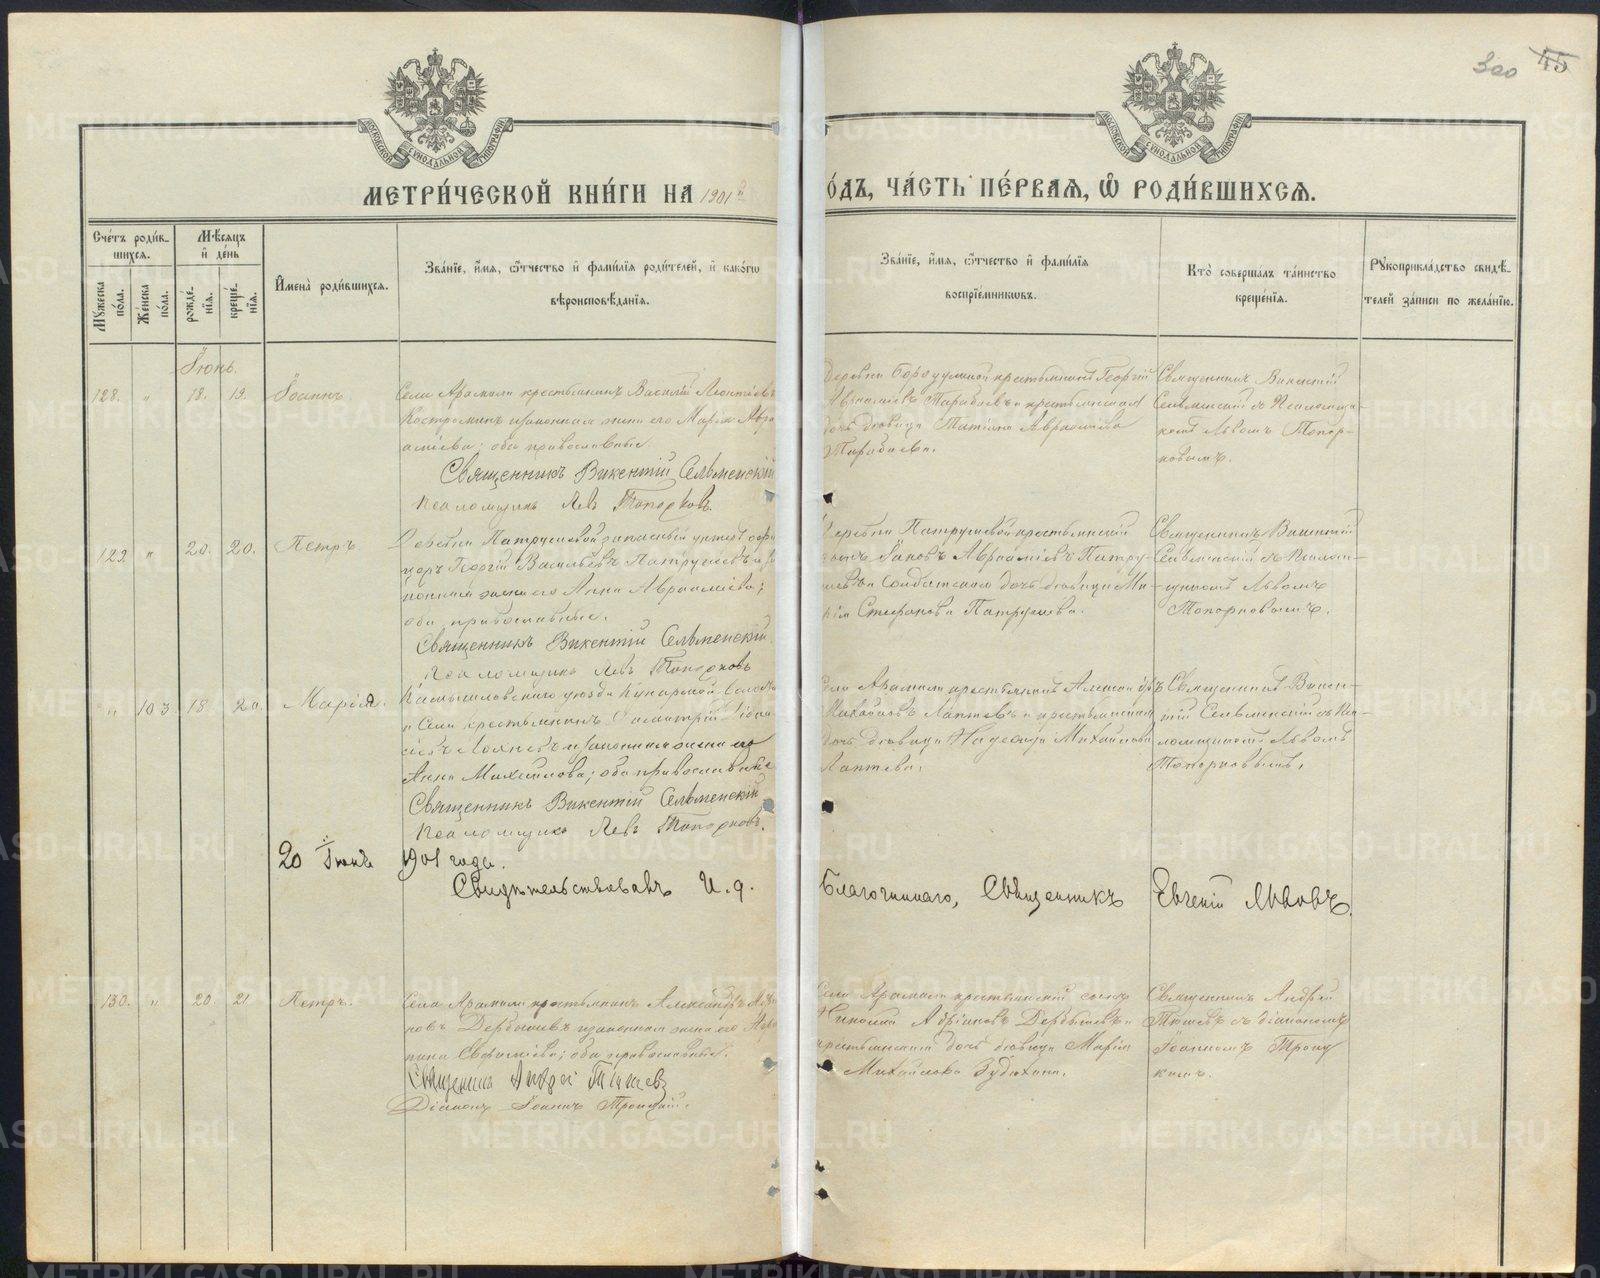 300 45
МОСКОВСКОЙ СѴНОДАЛЬНОЙ ТИПОГРАФІИ
МОСКОВСКОЙ СѴНОДАЛЬНОЙ ТИПОГРАФІИ
МЕТРИ́ЧЕСКОЙ КНИ́ГИ НА 1901 й
О́ДЪ, ЧА́СТЬ ПЕ́РВАЯ, Ѿ РОДИ́ВШИХСЯ.
Сче́тъ роди́в-
шихся.
Мужеска по́ла.
Же́нска по́ла.
Мѣ́сяцъ
и҆ де́нь
рожде́нїя.
креще́нїя.
И҆мена̀ роди́вшихся.
Зва́нїе, и҆́мя, ѻ҆́тчество и҆ фами́лїя роди́телей, и҆ како́гѡ
вѣроисповѣ́данїя.
Зва́нїе, и҆́мя, ѻ҆́тчество и҆ фами́лїя
воспрїе́мниковъ.
Кто̀ соверша́лъ та́инство
креще́нїя.
Рукоприкла́дство свидѣ́-
телей за́писи по жела́нїю.
Іюнь.
128. " 18. 19. Іоаннъ.
Села Арамили крестьянинъ Василій Леонтіевъ
Костроминъ и законная жена его Марія Авра
аміева; оба православные.
Священникъ Викентій Сельменскій
Псаломщикъ Левъ Топорковъ.
Деревни Бородулиной крестьянинъ Георгій
Авраамовъ Тарабаевъ и крестьянская
дочь дѣвица Татіана Авраамова
Тарабаева.
Священникъ Викентій
Сельменскій съ Псаломщи-
комъ Львомъ Топор-
ковымъ.
129. " 20. 20. Петръ
Деревни Патрушевой запасный унтеръ офи
церъ Георгій Васильевъ Патрушевъ и за
конная жена его Анна Авраамова;
оба православные.
Священникъ Викентій Сельменскій
Псаломщикъ Левъ Топорковъ
Деревни Патрушевой крестьянскій
сынъ Іаковъ Авраамовъ Патру-
шевъ и Солдатская дочь дѣвица Ма-
рія Стефанова Патрушева.
Священникъ Викентій
Сельменскій съ Псалом-
щикомъ Львомъ
Топорковымъ.
" 103 18 20. Марія.
Камышловскаго уѣзда
и Села крестьянинъ Димитрій
и законная жена его
Анна Михаилова; оба православные
Священникъ Викентій Сельменскій
Псаломщикъ Левъ Топорковъ.
Села Арамили крестьянинъ
Михайловъ Лаптевъ и крестьянская
дочь дѣвица Надежда Михайлова
Лаптева.
Священникъ Викен-
тій Сельменскій съ Пса-
ломщикомъ Львомъ
Топорковымъ.
20 Іюня 1901 года.
Свидѣтельствовалъ И. д. Благочиннаго, Священникъ Евгеній Львовъ.
130. " 20. 21 Петръ.
Села Арамили крестьянинъ Александръ
Дербышевъ и законная жена его
Евфиміева; оба православные.
Священникъ Андрей
Діаконъ Іоаннъ Троицкій.
Села Арамили крестьянскій сынъ
Николай Адріановъ Дербышевъ и
крестьянская дочь дѣвица Марія
Михайлова Зудихина.
Священникъ Андрей
съ діакономъ
Іоанномъ Троиц
кимъ.
METRIKI.GASO-URAL.RU